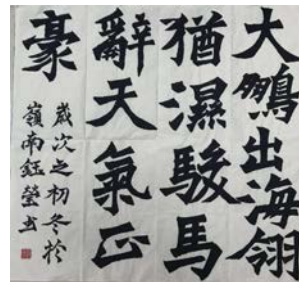 大鵬出海翎
猶濕駿馬
辭天氣正
豪
嵗次之初冬於
嶺南鈺瑩书